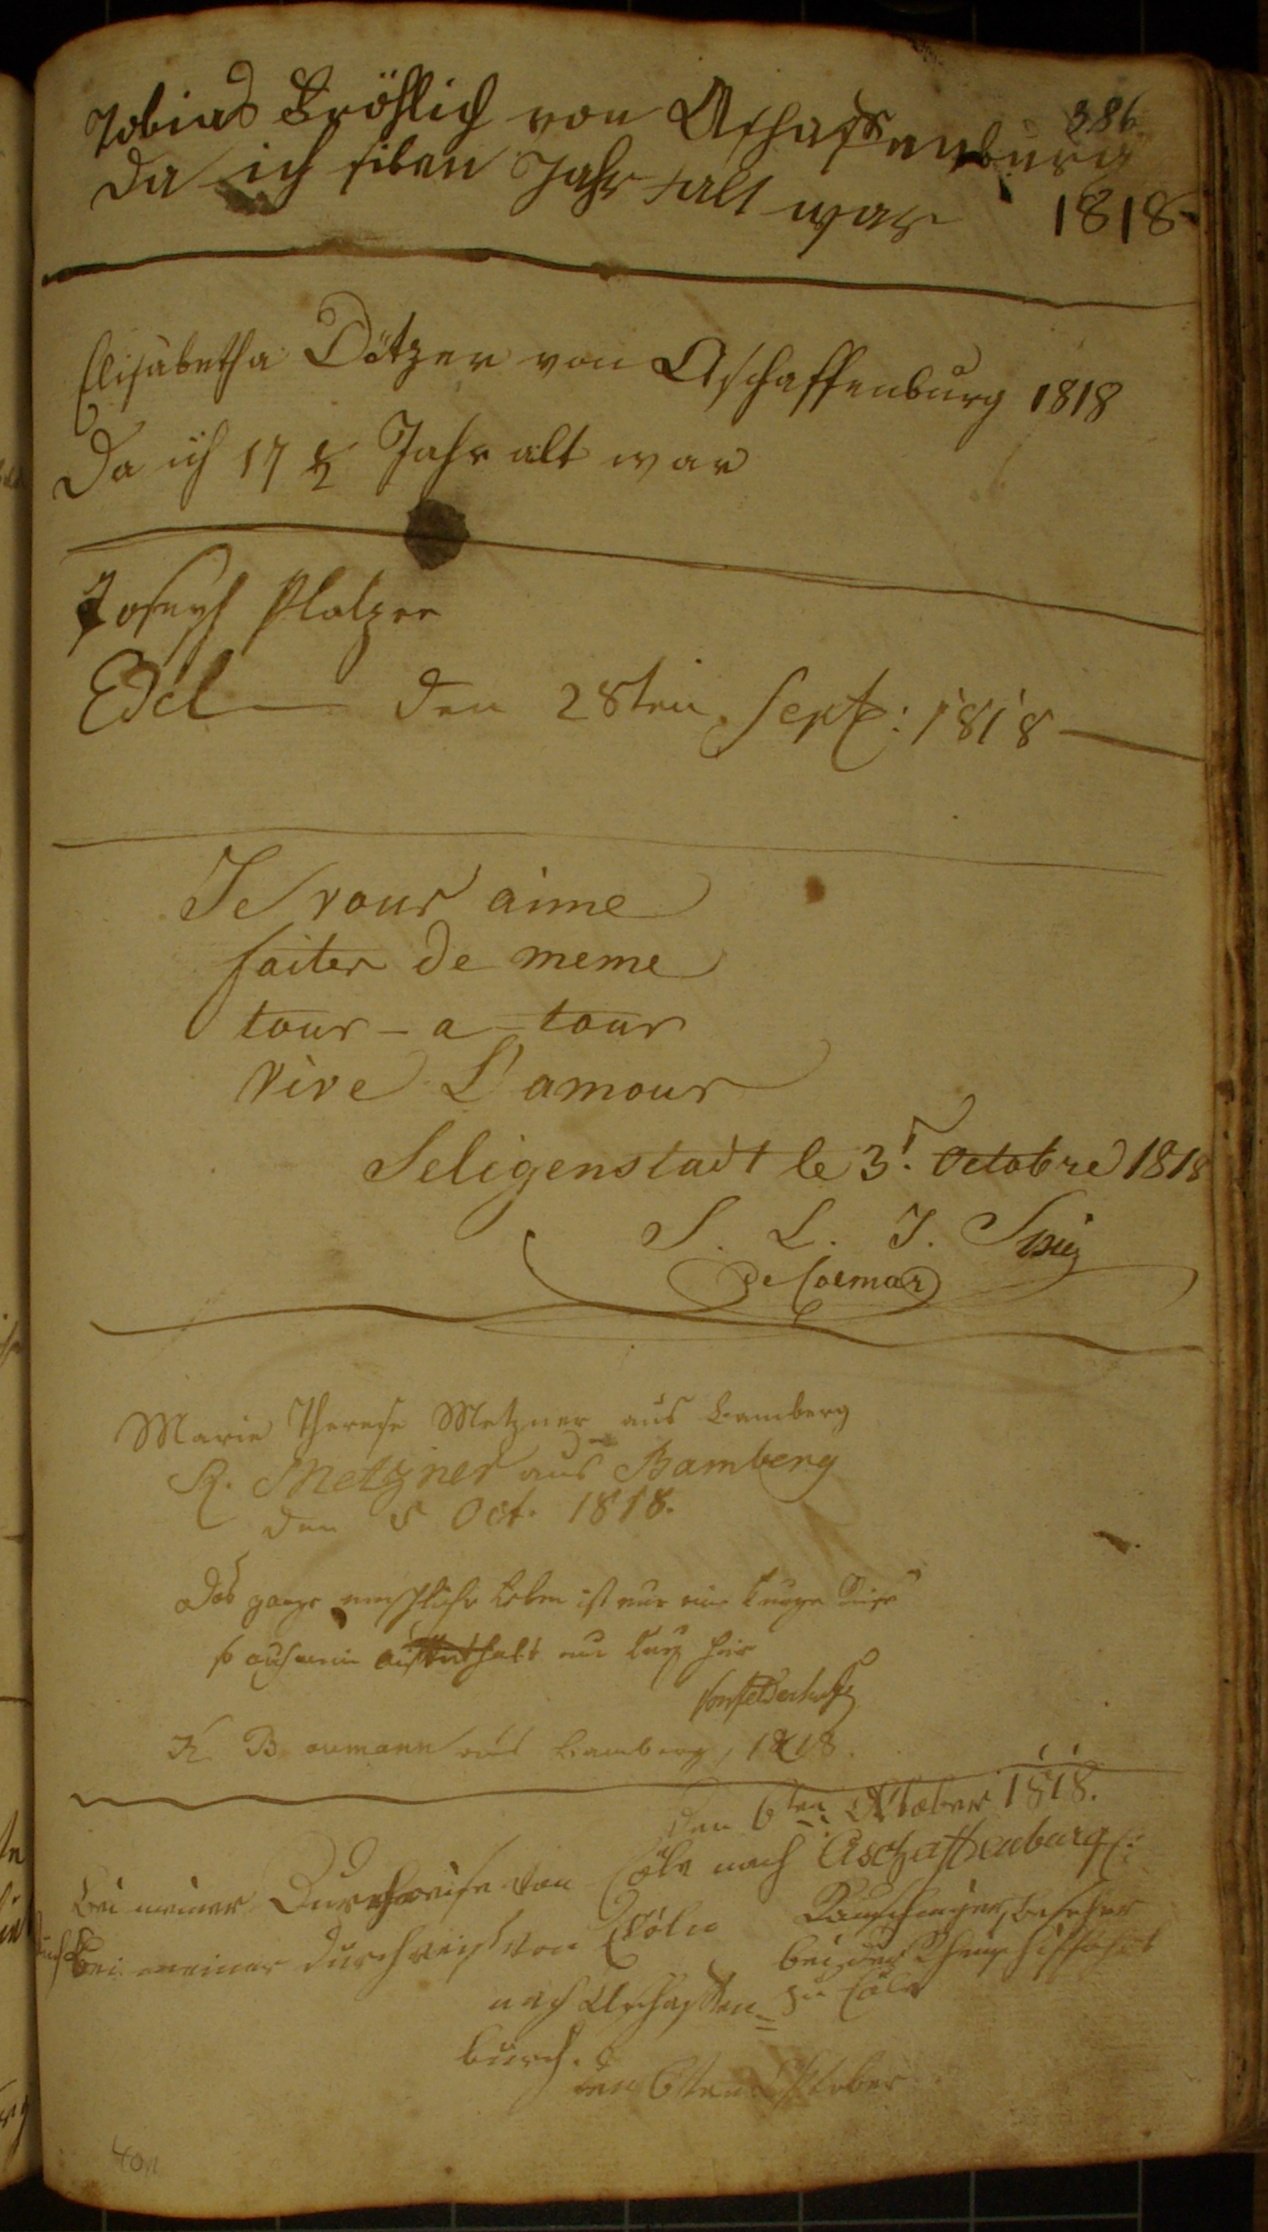 386.
Tobias Fröhlich von Aschaffenburg
da ich siben Jahr alt war 1818
Elisabetha Dötzer von Aschaffenburg 1818
Da ich 17 ½ Jahr alt war
Joseph Platzer
Edel den 28ten Sept: 1818
Je vous aime
faites de meme
tour - a - tour
vive L'amour
Seligenstadt le 3. Octobre 1818
S. L. J.
de Colmar
Marie Therese Metzner aus Bamberg
R. Metzner aus Bamberg
den 5 Oct. 1818.
Das ganze menschliche Leben ist nur eine kurze Reise
so auch mein Aufenthalt nur kurz hier
K. Baumann aus Bamberg, 1818.
den 6ten Oktober 1818.
Bei meiner Durchreise von Cöln nach Aschaffenburg
Bei meiner Durchreise von Cöln
bei der Rheinschiffahrt
nach Aschaffen=
zu Cöln
burch.
den 6ten Oktober